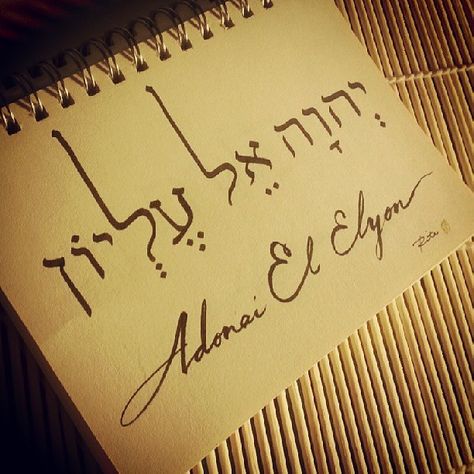 יְהוָה אֵל עֶלְיוֹן
Adonai El Elyon